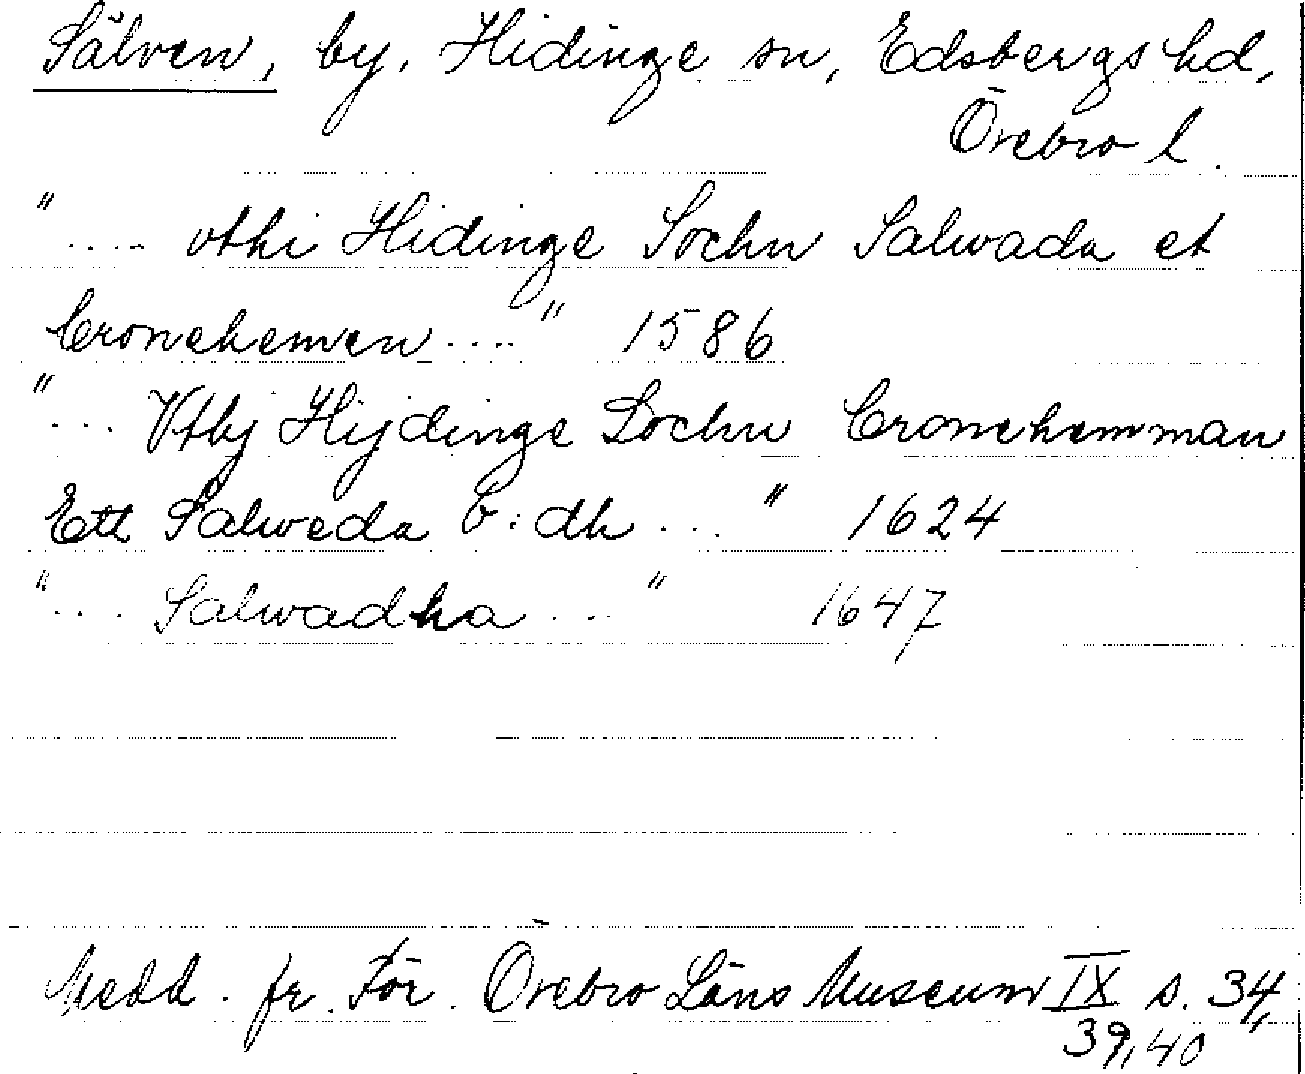 Sälven, by, Hidinge sn, Edsbergs hd,
Örebro l.
".... vthi Hidinge Sochn Salwada et
Cronehemen...." 1586
"... Vthj Hijdinge Sochn Cronehemman
Ett Salweda b:dh ..." 1624
".... Salwadha ..." 1647
Medd. fr. För. Örebro Läns Museum IX s. 34,
39,40